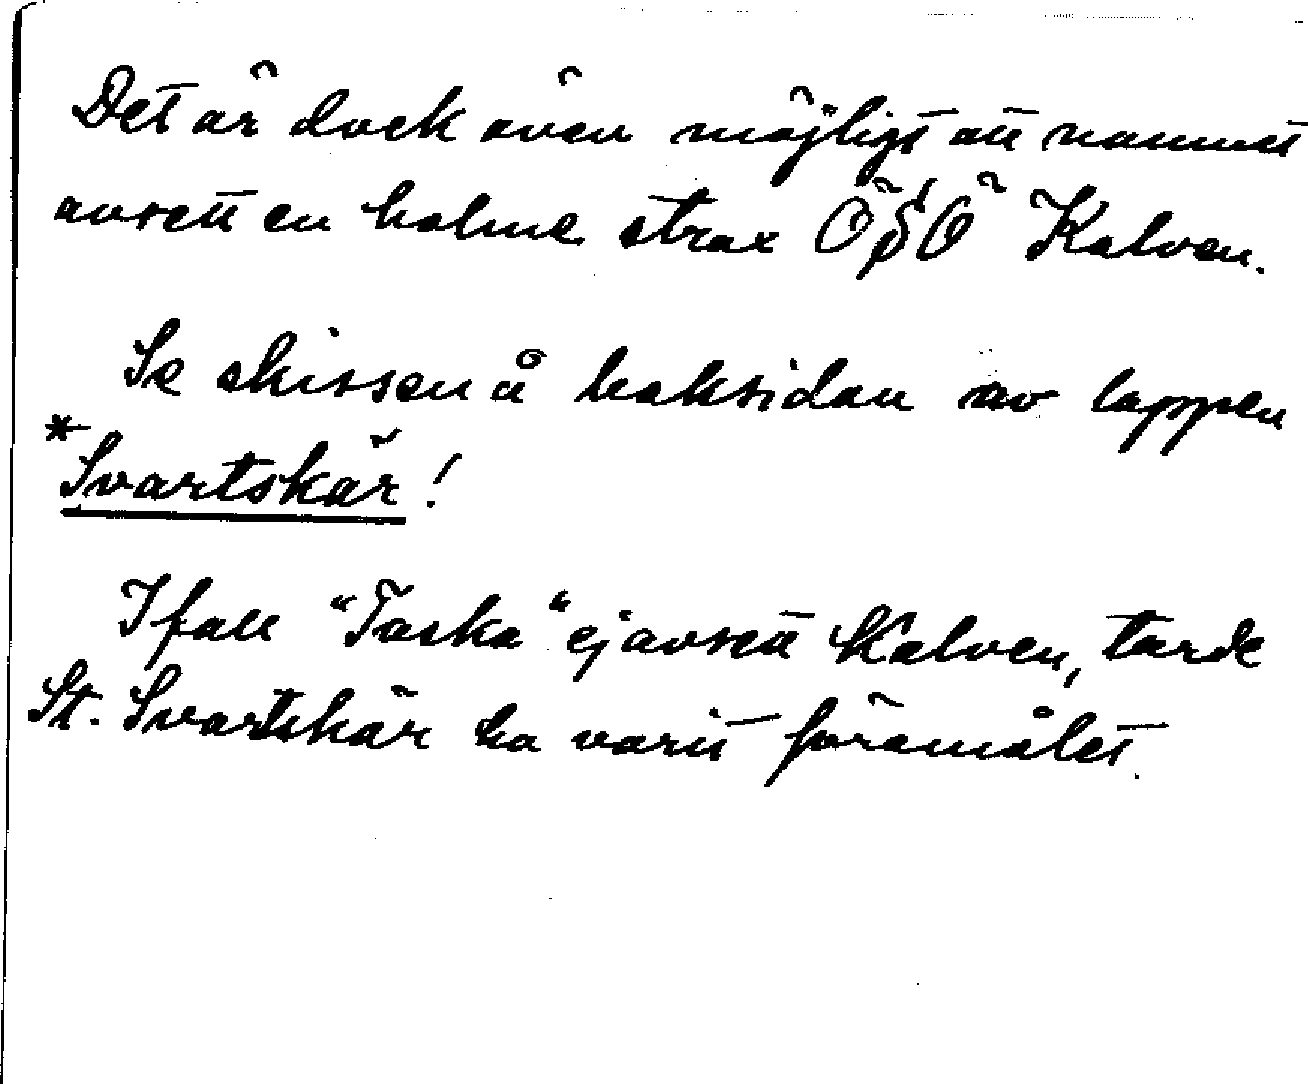 Det är dock även möjligt att namnet
avsett en holme strax ÖSÖ Kalven.
Se skissen å baksidan av lappen
*Svartskär!
Ifall "Taska" ej avsett Kalven, torde
St. Svartskär ha varit föremålet.